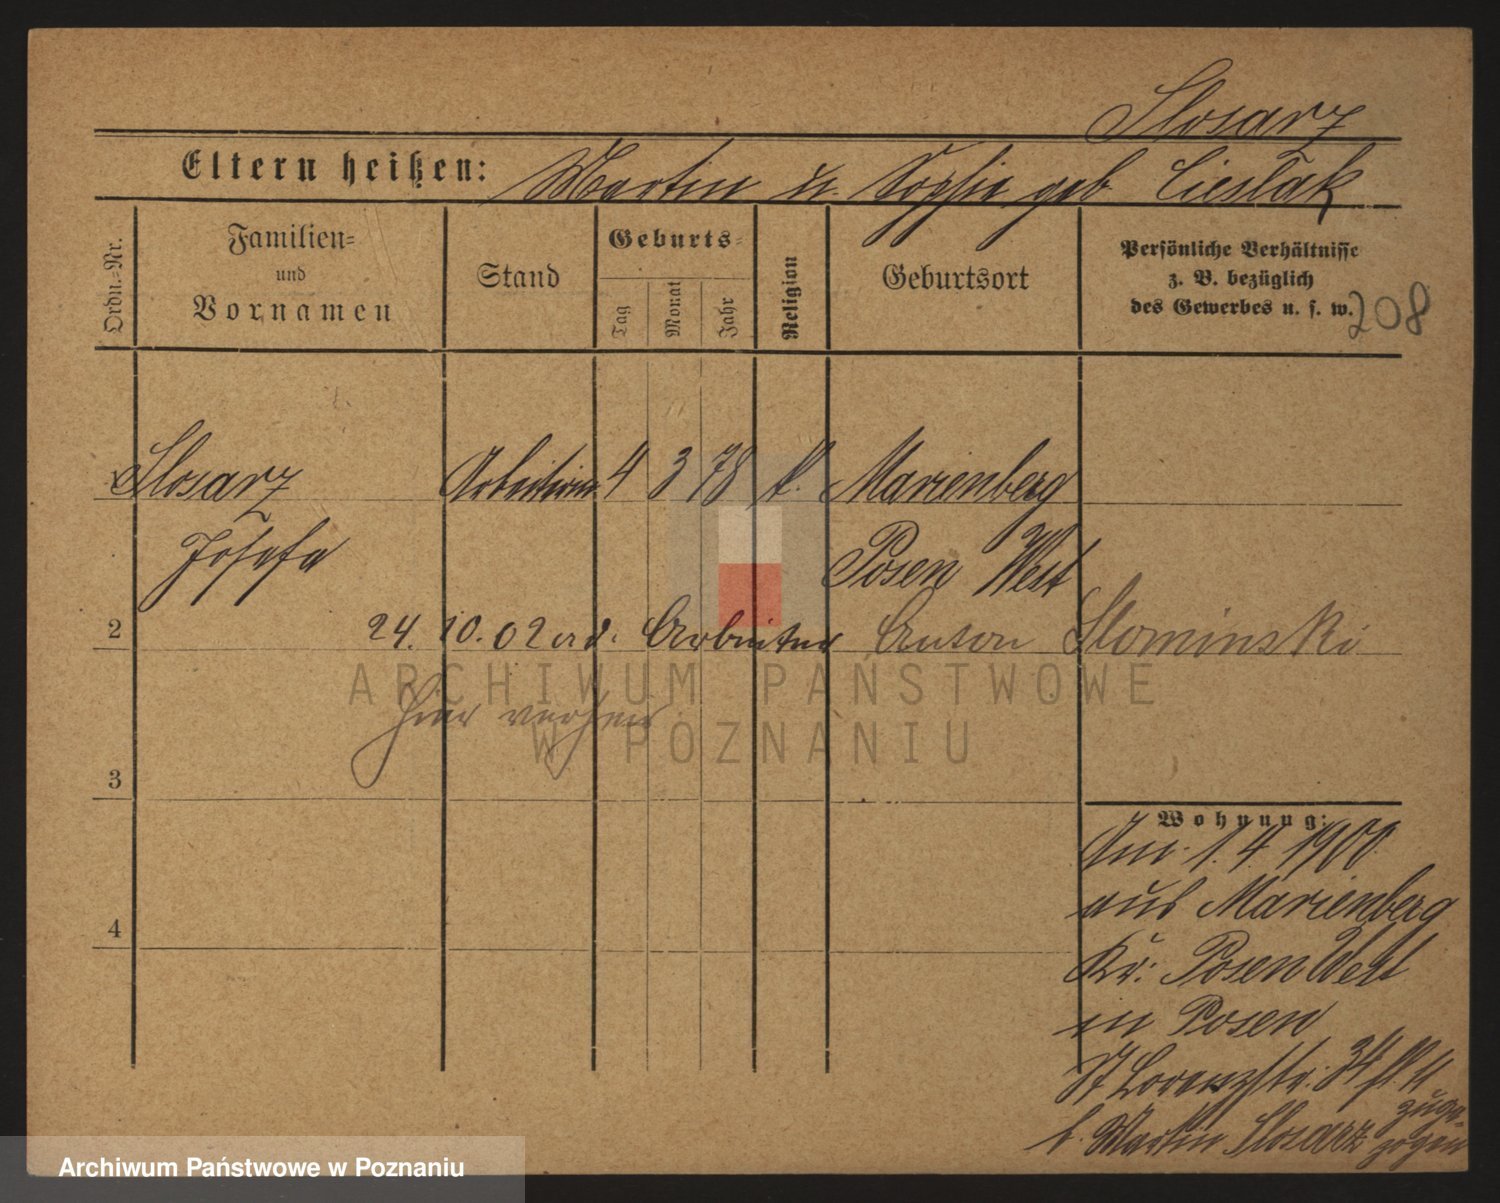 Slosarz
Eltern heißen: Martin u. Sophie geb. Cieslak
Ordn.=Nr.
Familien=
und
Vornamen
Stand
Geburts=
Tag
Monat
Jahr
Religion
Geburtsort
Persönliche Verhältnisse
z. B. bezüglich
des Gewerbes u. s. w.
208
Slosarz Arbeiterin 4 3 78 k. Marienberg
Josefa Posen West
2 24. 10. 02 ad. Arbeiter Anton Slominski
hier
ARCHIWUM PAŃSTWOWE
W POZNANIU
3
Wohnung:
Am 1. 4. 1900
aus Marienberg
Kr. Posen West
in Posen
St Lorenzstr. 34
b. Martin Slosarz zuge-
zogen
4
Archiwum Państwowe w Poznaniu